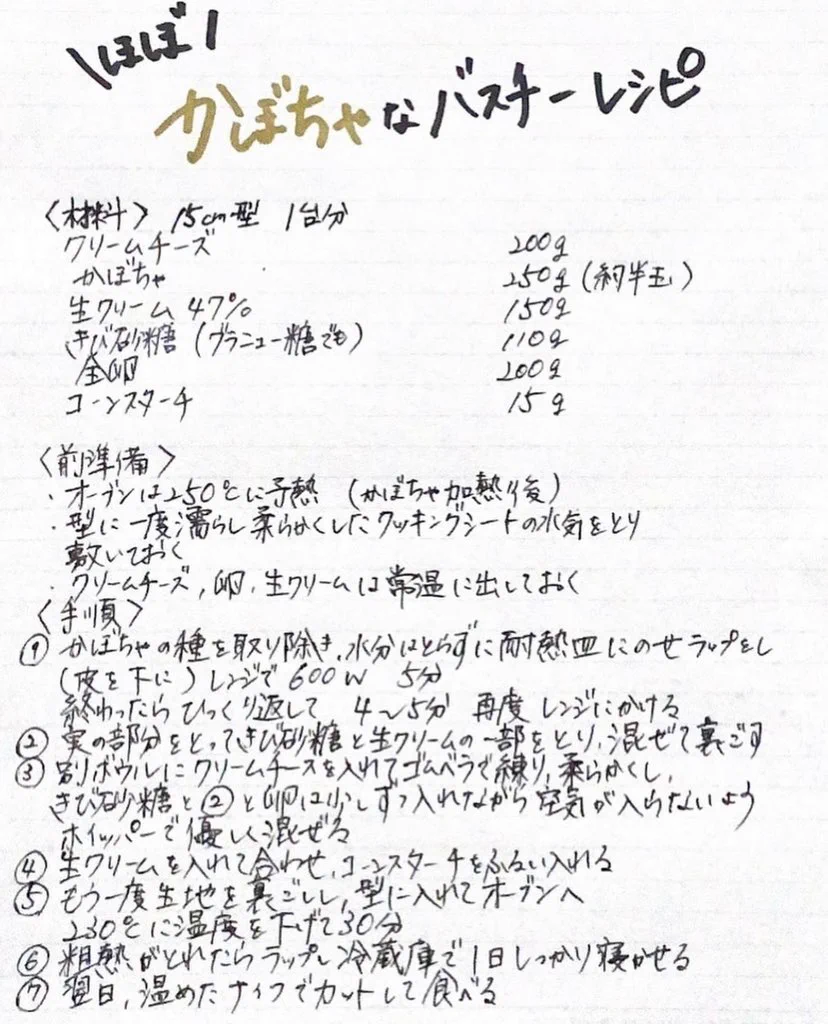 \ほぼ/
かぼちゃなバスチーレシピ
〈材料〉 15cm型 1台分
クリームチーズ 200g
かぼちゃ 250g(約半玉)
生クリーム 47% 150g
きび砂糖(グラニュー糖でも) 110g
全卵 200g
コーンスターチ 15g
〈前準備〉
・オーブンは250℃に予熱 (かぼちゃ加熱後)
・型に一度濡らし柔らかくしたクッキングシートの水気をとり
敷いておく
・クリームチーズ, 卵, 生クリームは常温に出しておく
〈手順〉
① かぼちゃの種を取り除き、水分はとらずに耐熱皿にのせラップをし
(皮を下に)レンジで600W 5分
終わったらひっくり返して 4〜5分 再度レンジにかける
② 実の部分をとってきび砂糖と生クリームの一部をとり、混ぜて裏ごす
③ 別ボウルにクリームチーズを入れてゴムベラで練り、柔らかくし、
きび砂糖と②と卵は少しずつ入れながら空気が入らないよう
ホイッパーで優しく混ぜる
④ 生クリームを入れて合わせ、コーンスターチをふるい入れる
⑤ もう一度生地を裏ごしし、型に入れてオーブンへ
230℃に温度を下げて30分
⑥ 粗熱がとれたらラップし冷蔵庫で1日しっかり寝かせる
⑦ 翌日、温めたナイフでカットして食べる